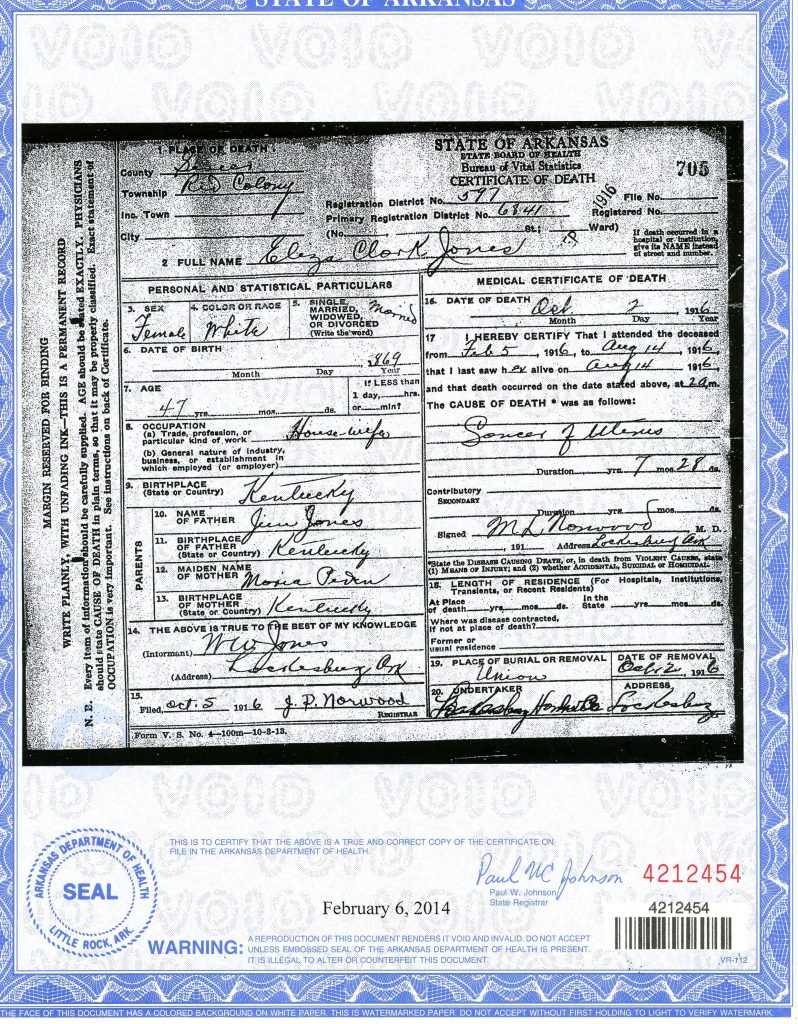 STATE OF ARKANSAS
VOID VOID VOID
MARGIN RESERVED FOR BINDING
WRITE PLAINLY, WITH UNFADING INK—THIS IS A PERMANENT RECORD
N. B. Every item of information should be carefully supplied. AGE should be stated EXACTLY. PHYSICIANS
should state CAUSE OF DEATH in plain terms, so that it may be properly classified. Exact statement of
OCCUPATION is very important. See instructions on back of Certificate.
1 PLACE OF DEATH:
County Sevier
Township Red Colony
Inc. Town
City
STATE OF ARKANSAS
STATE BOARD OF HEALTH
Bureau of Vital Statistics
CERTIFICATE OF DEATH
705
1916
Registration District No. 597 File No.
Primary Registration District No. 6841 Registered No.
(No. St.; Ward)
If death occurred in a
hospital or institution,
give its NAME instead
of street and number.
2 FULL NAME Eliza Clark Jones
PERSONAL AND STATISTICAL PARTICULARS
3. SEX Female
4. COLOR OR RACE White
5. SINGLE, MARRIED, WIDOWED, OR DIVORCED (Write the word) Married
6. DATE OF BIRTH 1869
Month Day Year
7. AGE 47 yrs. mos. ds.
If LESS than
1 day, hrs.
or min?
8. OCCUPATION
(a) Trade, profession, or
particular kind of work House-wife
(b) General nature of industry,
business, or establishment in
which employed (or employer)
9. BIRTHPLACE
(State or Country) Kentucky
PARENTS
10. NAME
OF FATHER Jim Jones
11. BIRTHPLACE
OF FATHER
(State or Country) Kentucky
12. MAIDEN NAME
OF MOTHER Peden
13. BIRTHPLACE
OF MOTHER
(State or Country) Kentucky
14. THE ABOVE IS TRUE TO THE BEST OF MY KNOWLEDGE
(Informant) W W Jones
(Address) Lockesburg Ark
15.
Filed, Oct. 5 1916 J. P. Norwood
REGISTRAR
Form V. S. No. 4—100m—10-3-13.
MEDICAL CERTIFICATE OF DEATH
16. DATE OF DEATH Oct 2, 1916
Month Day Year
17 I HEREBY CERTIFY That I attended the deceased
from Feb 5, 1916, to Aug 14, 1916,
that I last saw her alive on Aug 14 1916,
and that death occurred on the date stated above, at 2 a m.
The CAUSE OF DEATH * was as follows:
Cancer of Uterus
Duration yrs. 7 mos. 28 ds.
Contributory
SECONDARY
Duration yrs. mos. ds.
Signed M L Norwood M. D.
, 191 Address Lockesburg Ark
*State the DISEASE CAUSING DEATH, or, in death from VIOLENT CAUSES, state
(1) MEANS OF INJURY; and (2) whether ACCIDENTAL, SUICIDAL or HOMICIDAL.
18. LENGTH OF RESIDENCE (For Hospitals, Institutions,
Transients, or Recent Residents)
At Place In the
of death yrs. mos. ds. State yrs. mos. ds.
Where was disease contracted,
if not at place of death?
Former or
usual residence
19. PLACE OF BURIAL OR REMOVAL Union
DATE OF REMOVAL Oct. 2, 1916
20. UNDERTAKER Lockesburg
ADDRESS Lockesburg
VOID VOID VOID
ARKANSAS DEPARTMENT OF HEALTH
SEAL
LITTLE ROCK, ARK.
THIS IS TO CERTIFY THAT THE ABOVE IS A TRUE AND CORRECT COPY OF THE CERTIFICATE ON
FILE IN THE ARKANSAS DEPARTMENT OF HEALTH.
February 6, 2014
Paul W. Johnson
Paul W. Johnson
State Registrar
4212454
4212454
WARNING: A REPRODUCTION OF THIS DOCUMENT RENDERS IT VOID AND INVALID. DO NOT ACCEPT
UNLESS EMBOSSED SEAL OF THE ARKANSAS DEPARTMENT OF HEALTH IS PRESENT.
IT IS ILLEGAL TO ALTER OR COUNTERFEIT THIS DOCUMENT.
VR-112
THE FACE OF THIS DOCUMENT HAS A COLORED BACKGROUND ON WHITE PAPER. THIS IS WATERMARKED PAPER. DO NOT ACCEPT WITHOUT FIRST HOLDING TO LIGHT TO VERIFY WATERMARK.